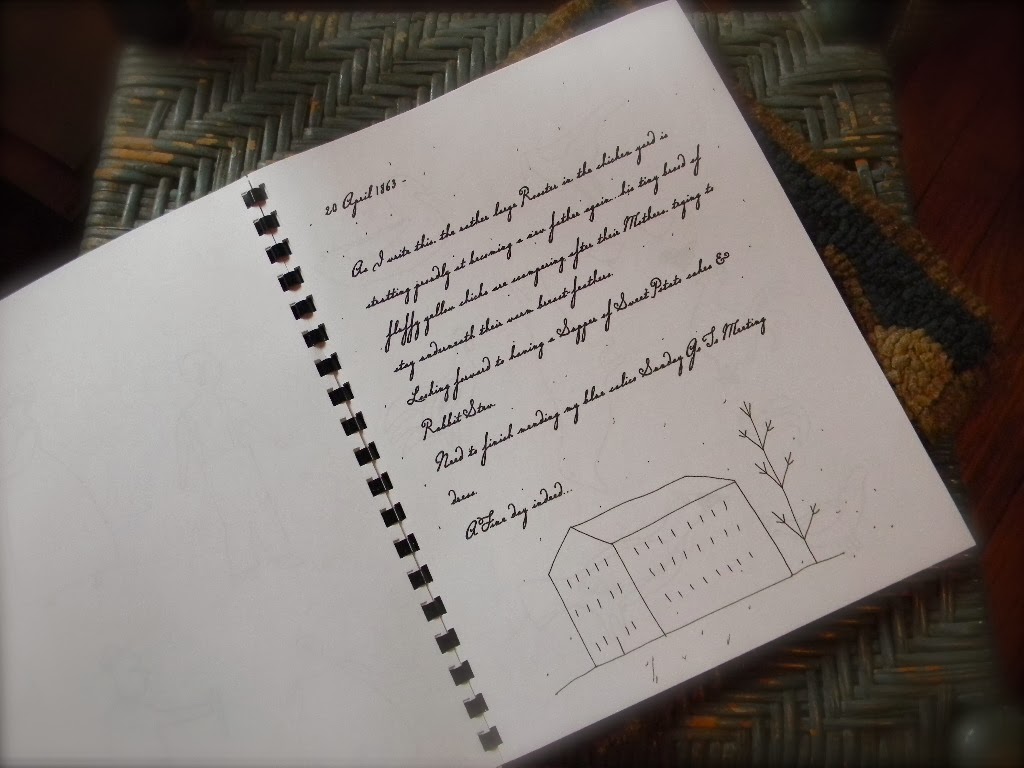 20 April 1863 -
As I write this, the rather large Rooster in the chicken yard is
strutting proudly at becoming a new father again...his tiny brood of
fluffy yellow chicks are scampering after their Mothers, trying to
stay underneath their warm breast feathers.
Looking forward to having a Supper of Sweet Potato cakes &
Rabbit Stew.
Need to finish mending my blue calico Sunday Go To Meeting
dress.
A Fine day indeed...